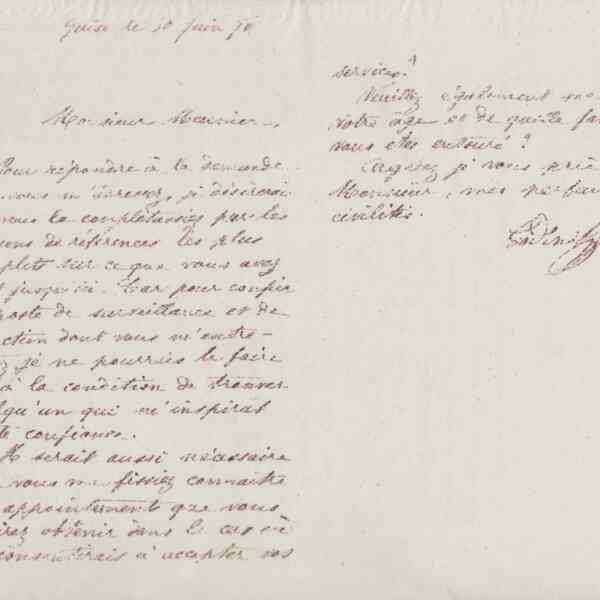 Guise le 10 juin 76
Monsieur Meunier,
Pour répondre à la demande
vous m'adressez, je désirerai
vous la complétassiez par les
ions de références les plus
plets sur ce que vous avez
t jusqu'ici. Car pour confier
poste de surveillance et de
ction dont vous m'entre-
z, je ne pourrais le faire
à la condition de trouver
lqu'un qui m'inspirat
te confiance.
Il serait aussi nécessaire
vous me fissiez connaître
appointement que vous
irez obtenir dans le cas où
consentirais à accepter vos
services?
Veuillez également me
votre âge et de quelle fa
vous êtes entouré?
Agréez, je vous prie
Monsieur, mes parfai
civilités.
Godin